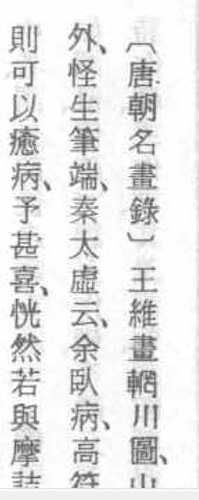 〔唐朝名畫錄〕王維畫輞川圖、山
外、怪生筆端、秦太虛云、余臥病、高符
則可以癒病、予甚喜、恍然若與摩詰